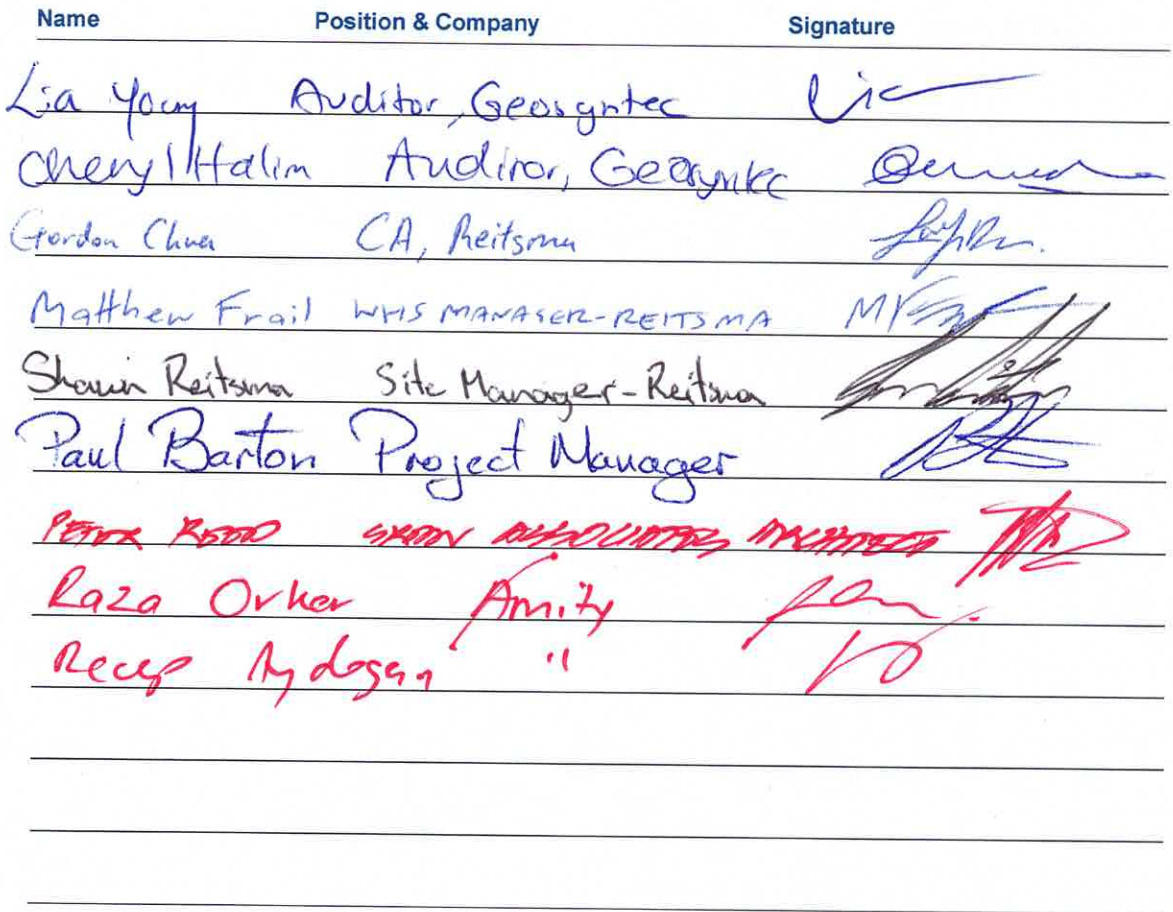 Name Position & Company Signature
Lia Young Auditor, Geosyntec
Cheryl Halim Auditor, Geosyntec
Gordon Chua CA, Reitsma
Matthew Frail WHS MANAGER-REITSMA
Shaun Reitsma Site Manager-Reitsma
Paul Barton Project Manager
PETER REED ASSOCIATES ARCHITECT
Raza Orker Amity
Recep Aydogan "